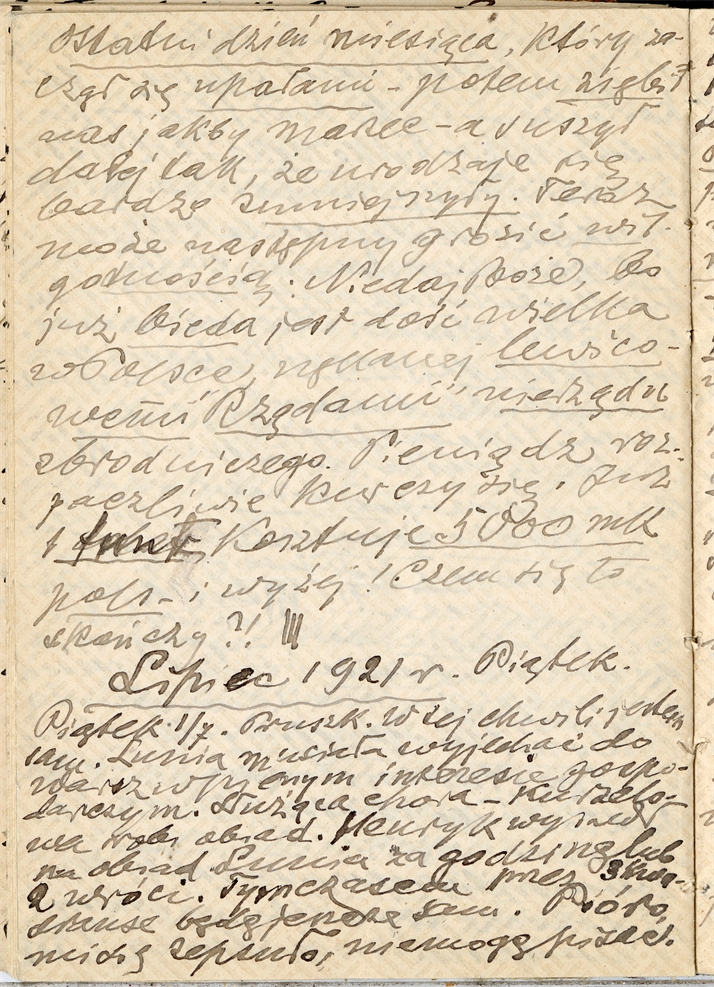 Ostatni dzień miesiąca, który za-
czął się upałami - potem ziębił
nas jakby marzec - a suszył
dalej tak, że urodzaje się
bardzo zmniejszyły. Teraz
może następny grozić wil-
gotnością. Niedaj Boże, bo
już bieda jest dość wielka
w Polsce, nękanej lewico-
wemi Rządami nierządu
zbrodniczego. Pieniądz roz-
paczliwie kurczy się. Już
1 funt kosztuje 5000 mk
pols - i wyżej! Czem się to
skończy?!
Lipiec 1921 r. Piątek.
Piątek 1/7. Pruszk. W tej chwili jestem
sam. Lunia musiała wyjechać do
Warsz w pilnym interesie gospo-
darczym. Służąca chora -
wa robi obiad. Henryk
na obiad Lunia za godzinę lub
2 wróci. Tymczasem przez
będę jeszcze sam. Pióro
mi się zepsuło, niemogę pisać.